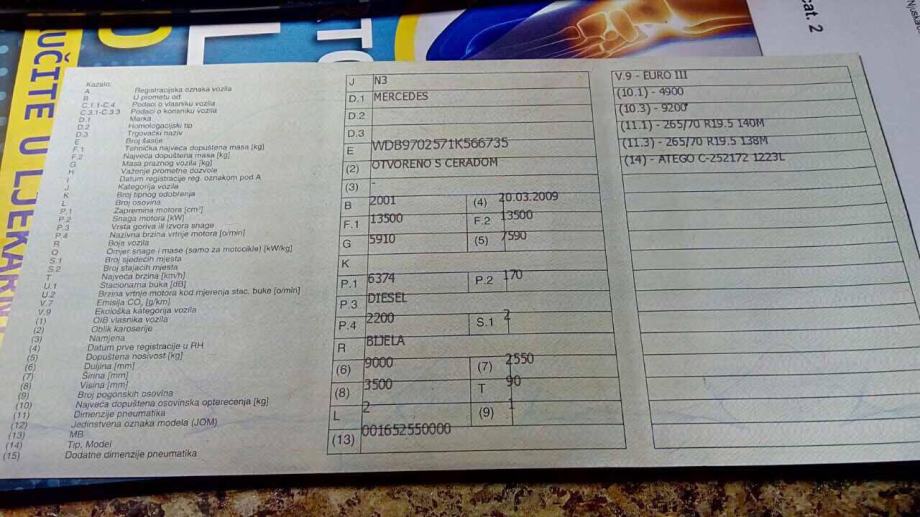 UČITE U LJEKARN
TO
cat. 2
Kazalo:
A Registracijska oznaka vozila
B U prometu od
C.1.1-C.4 Podaci o vlasniku vozila
C.3.1-C.3.3 Podaci o korisniku vozila
D.1 Marka
D.2 Homologacijski tip
D.3 Trgovački naziv
E Broj šasije
F.1 Tehnička najveća dopuštena masa [kg]
F.2 Najveća dopuštena masa [kg]
G Masa praznog vozila [kg]
H Važenje prometne dozvole
I Datum registracije reg. oznakom pod A
J Kategorija vozila
K Broj tipnog odobrenja
L Broj osovina
P.1 Zapremina motora [cm³]
P.2 Snaga motora [kW]
P.3 Vrsta goriva ili izvora snage
P.4 Nazivna brzina vrtnje motora [o/min]
R Boja vozila
Q Omjer snage i mase (samo za motocikle) [kW/kg]
S.1 Broj sjedećih mjesta
S.2 Broj stajaćih mjesta
T Najveća brzina [km/h]
U.1 Stacionarna buka [dB]
U.2 Brzina vrtnje motora kod mjerenja stac. buke [o/min]
V.7 Emisija CO₂ [g/km]
V.9 Ekološka kategorija vozila
(1) OIB vlasnika vozila
(2) Oblik karoserije
(3) Namjena
(4) Datum prve registracije u RH
(5) Dopuštena nosivost [kg]
(6) Duljina [mm]
(7) Širina [mm]
(8) Visina [mm]
(9) Broj pogonskih osovina
(10) Najveća dopuštena osovinska opterećenja [kg]
(11) Dimenzije pneumatika
(12) Jedinstvena oznaka modela (JOM)
(13) MB
(14) Tip, Model
(15) Dodatne dimenzije pneumatika
J N3
D.1 MERCEDES
D.2
D.3
E WDB9702571K566735
(2) OTVORENO S CERADOM
(3) -
B 2001 (4) 20.03.2009
F.1 13500 F.2 13500
G 5910 (5) 7590
K
P.1 6374 P.2 170
P.3 DIESEL
P.4 2200 S.1 2
R BIJELA
(6) 9000 (7) 2550
(8) 3500 T 90
L 2 (9) 1
(13) 001652550000
V.9 - EURO III
(10.1) - 4900
(10.3) - 9200
(11.1) - 265/70 R19.5 140M
(11.3) - 265/70 R19.5 138M
(14) - ATEGO C-252172 1223L